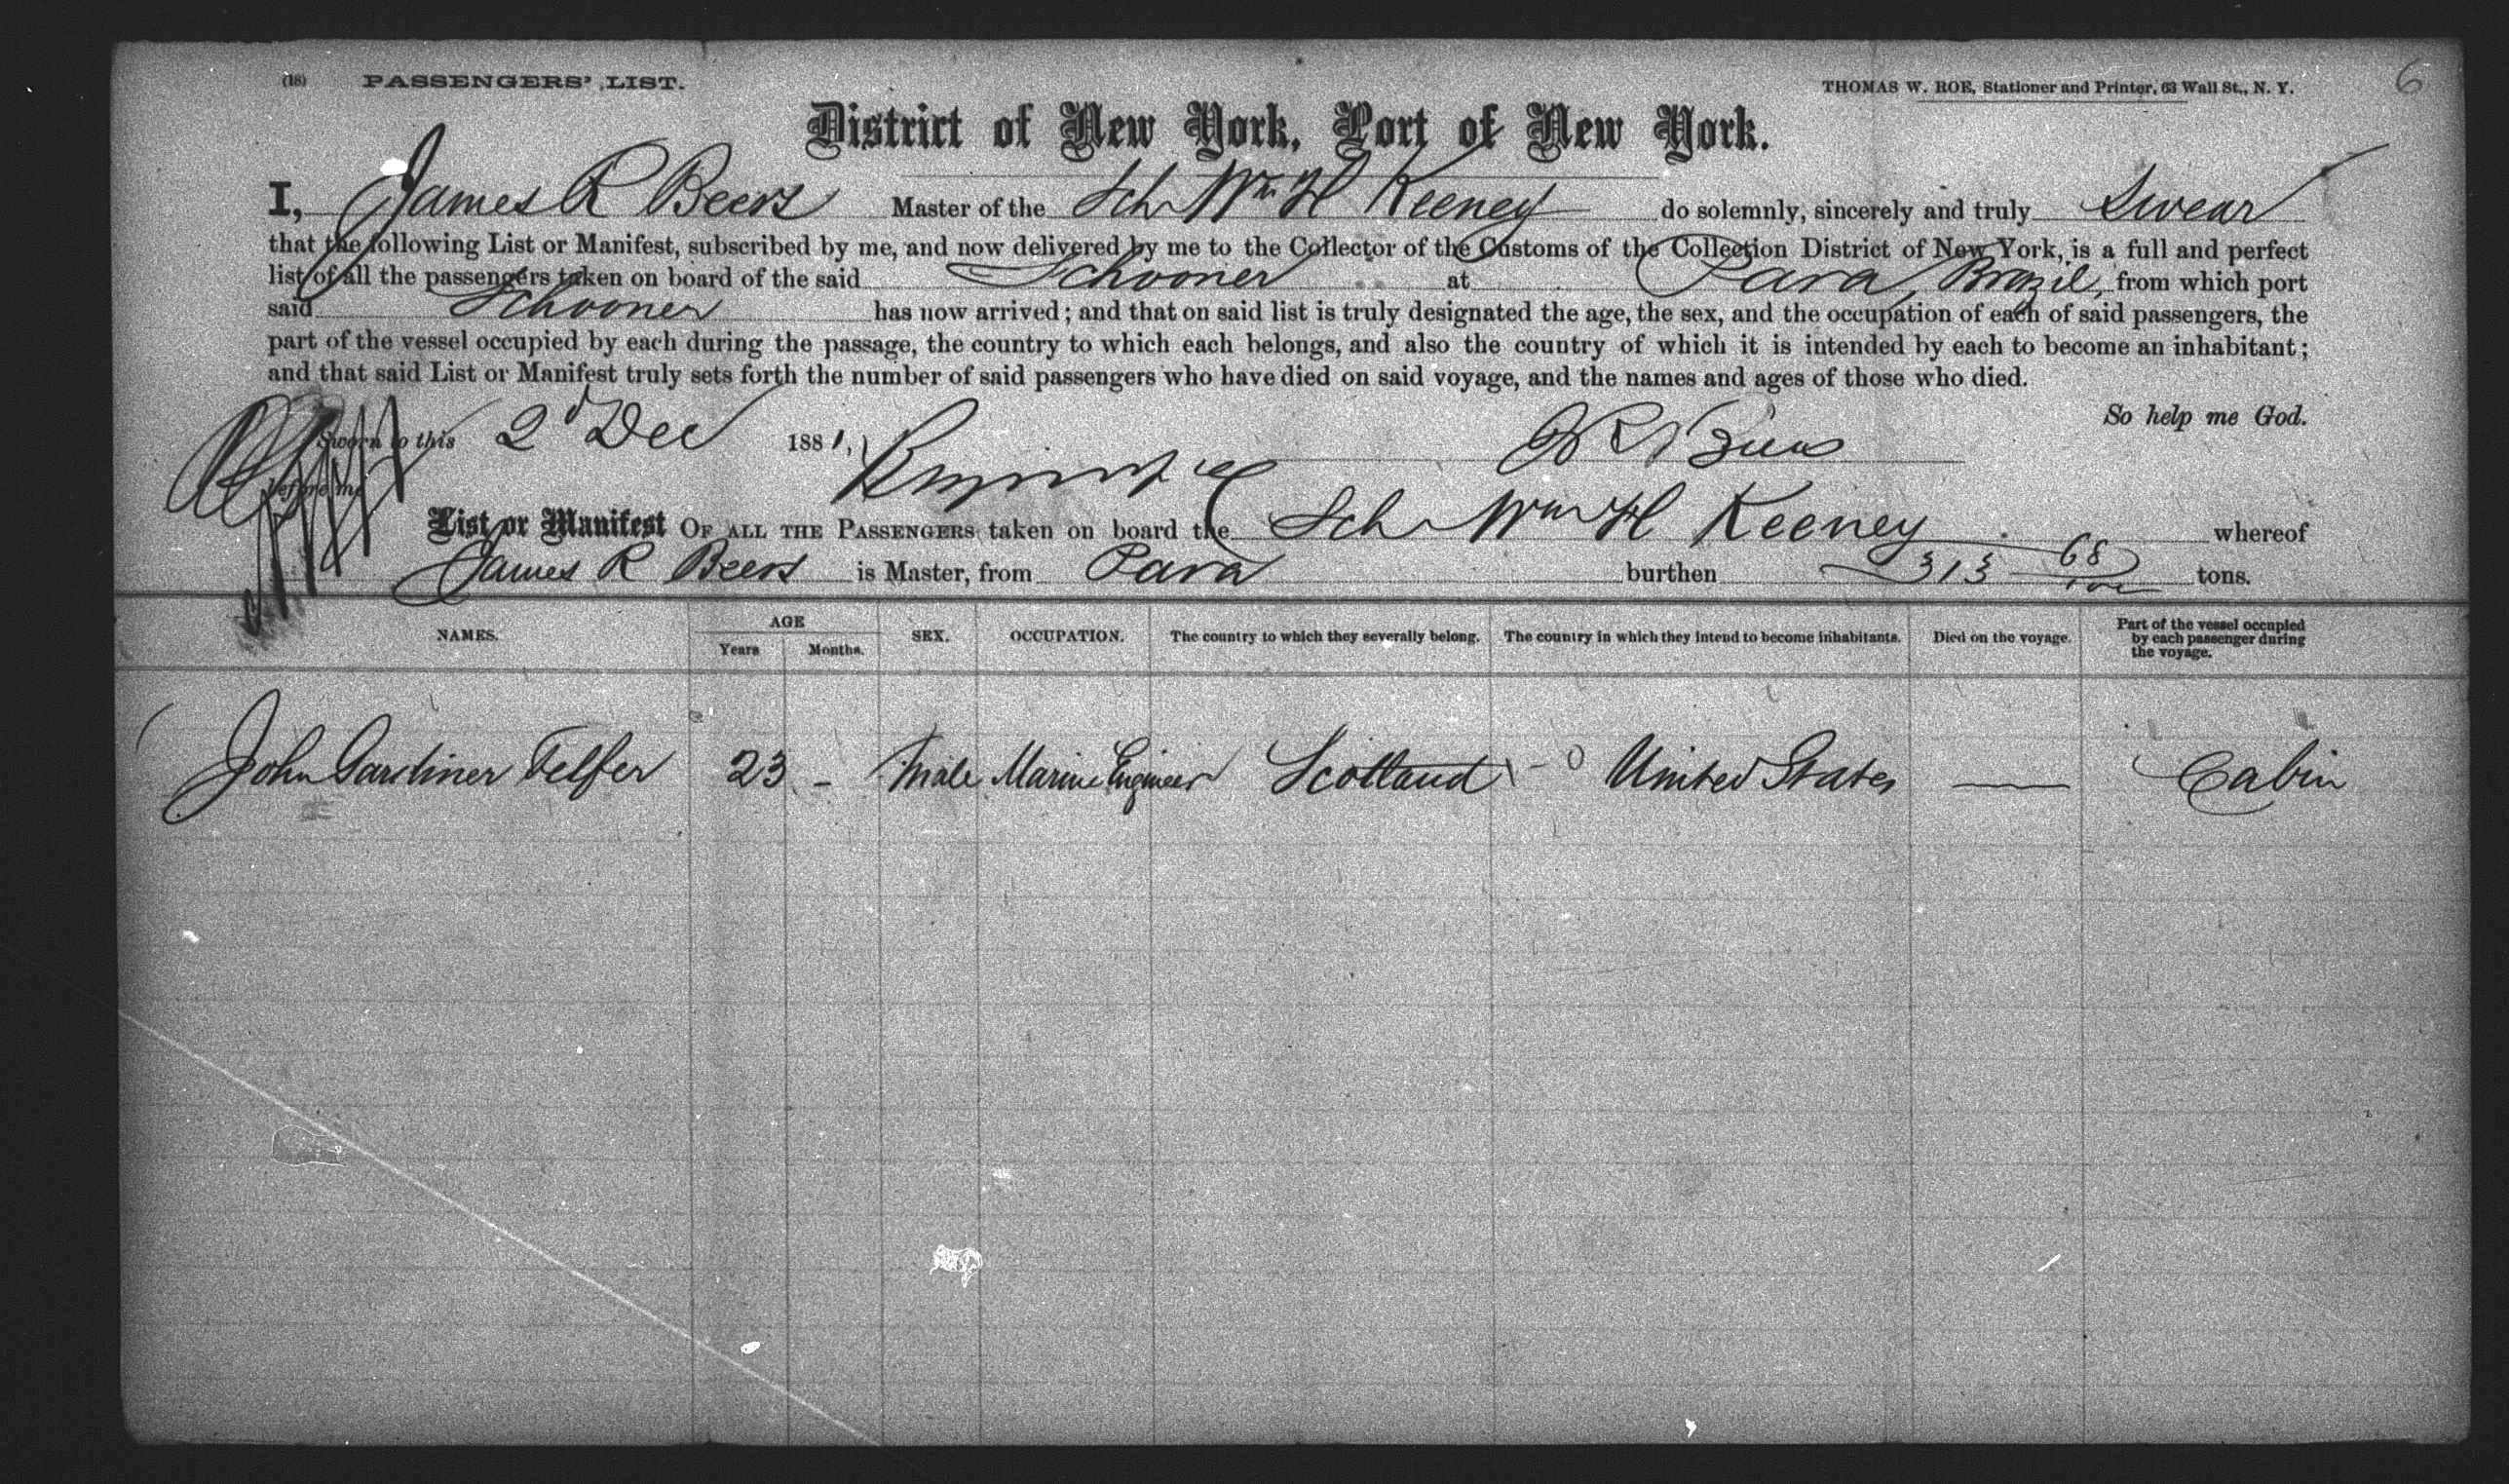 (18) PASSENGERS' LIST. THOMAS W. ROE, Stationer and Printer, 63 Wall St., N. Y. 6
District of New York, Port of New York.
I, James R Beers Master of the Sch Wm H Keeney do solemnly, sincerely and truly Swear
that the following List or Manifest, subscribed by me, and now delivered by me to the Collector of the Customs of the Collection District of New York, is a full and perfect
list of all the passengers taken on board of the said Schooner at Para, Brazil, from which port
said Schooner has now arrived; and that on said list is truly designated the age, the sex, and the occupation of each of said passengers, the
part of the vessel occupied by each during the passage, the country to which each belongs, and also the country of which it is intended by each to become an inhabitant;
and that said List or Manifest truly sets forth the number of said passengers who have died on said voyage, and the names and ages of those who died.
So help me God.
Sworn to this 2d Dec 1881, J R Beers
before me
List or Manifest OF ALL THE PASSENGERS taken on board the Sch Wm H Keeney whereof
James R Beers is Master, from Para burthen 313 68/100 tons.
NAMES. AGE Years Months. SEX. OCCUPATION. The country to which they severally belong. The country in which they intend to become inhabitants. Died on the voyage. Part of the vessel occupied by each passenger during the voyage.
John Gardiner Telfer 23 - Male Marine Engineer Scotland - 0 United States — Cabin